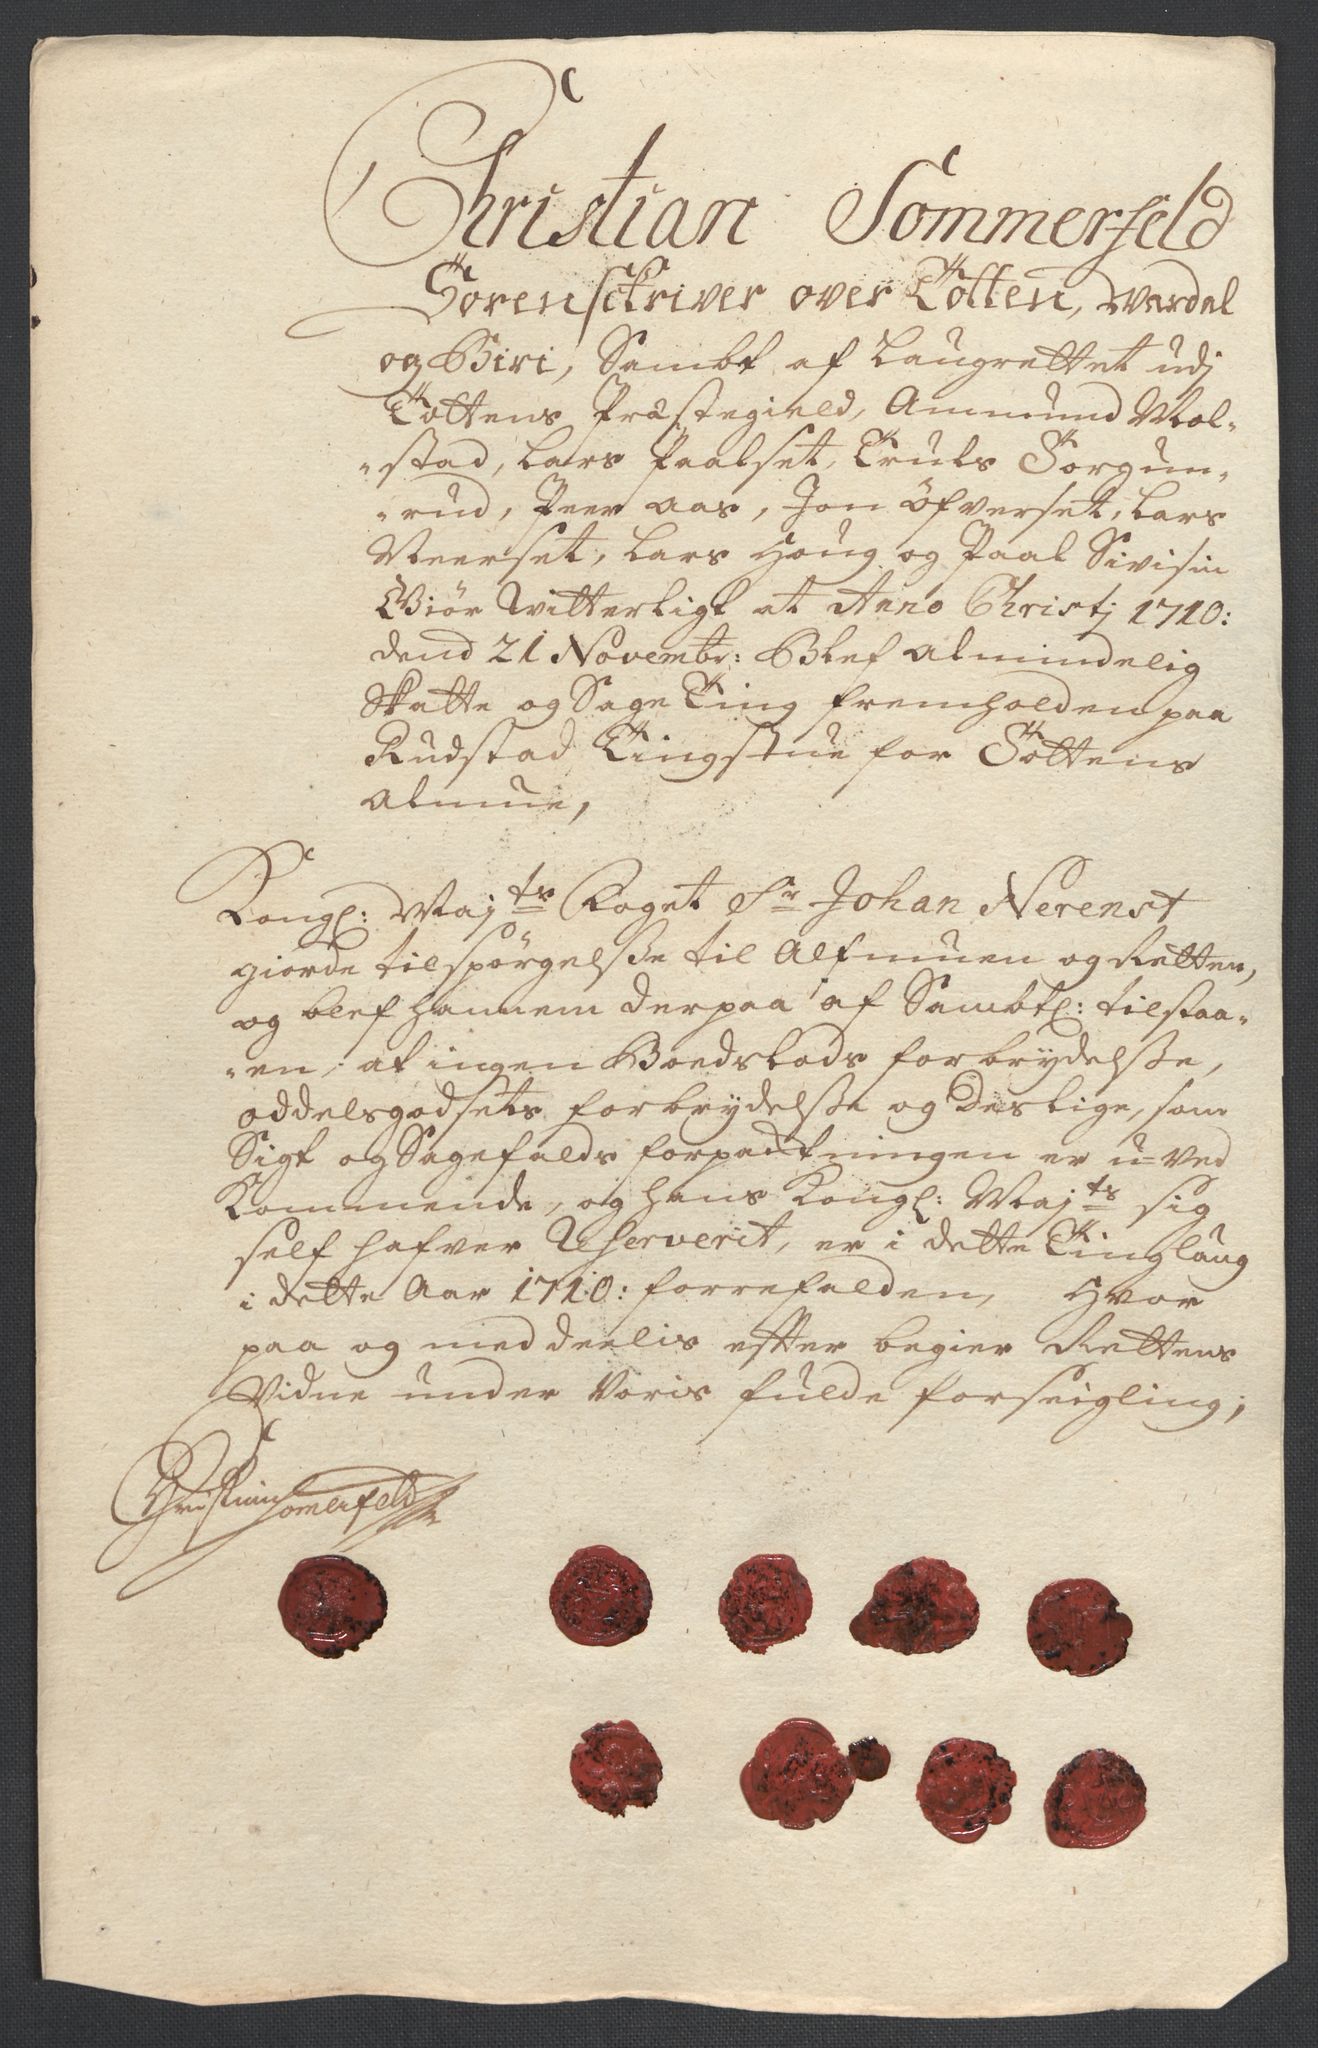 Christian Sommerfeld
Sorenschriver over Totten, Wardal
og Biri, Sambt af Laugrettet udj
Tottens Præstegield, Ammund Mæl-
-stad, Lars Paalset, Truls Torgun-
-rud, Peer Aas, Jon Öfverset, Lars
Meerset, Lars Houg og Paal Sivisin
Giör Witterligt at Anno Christj 1710:
dend 21 Novembr: Blef almindelig
Skatte og Sage Ting fremholden paa
Rudstad Tingstue for Tottens
Almue,
Kongl: Maj:ts Foget Sr Johan Nerenst
giorde tilspörgelsse til Alfmuen og Retten,
og blef hannem derpaa af Sambtl: tilstaa-
-en, at ingen Boedslods forbrydelsse,
oddelsgodsets forbrydelsse og deslige, som
Sigt og Sagefalds forpachtningen er u-ved
Kommende, og hans Kongl: Maj:ts sig
self hafver Reserverit, er i dette Tinglaug
i dette Aar 1710: forrefalden, Hvor
paa og meddeelis effter begier Rettens
Vidne under Voris fulde forseigling;
Christian Somerfeld